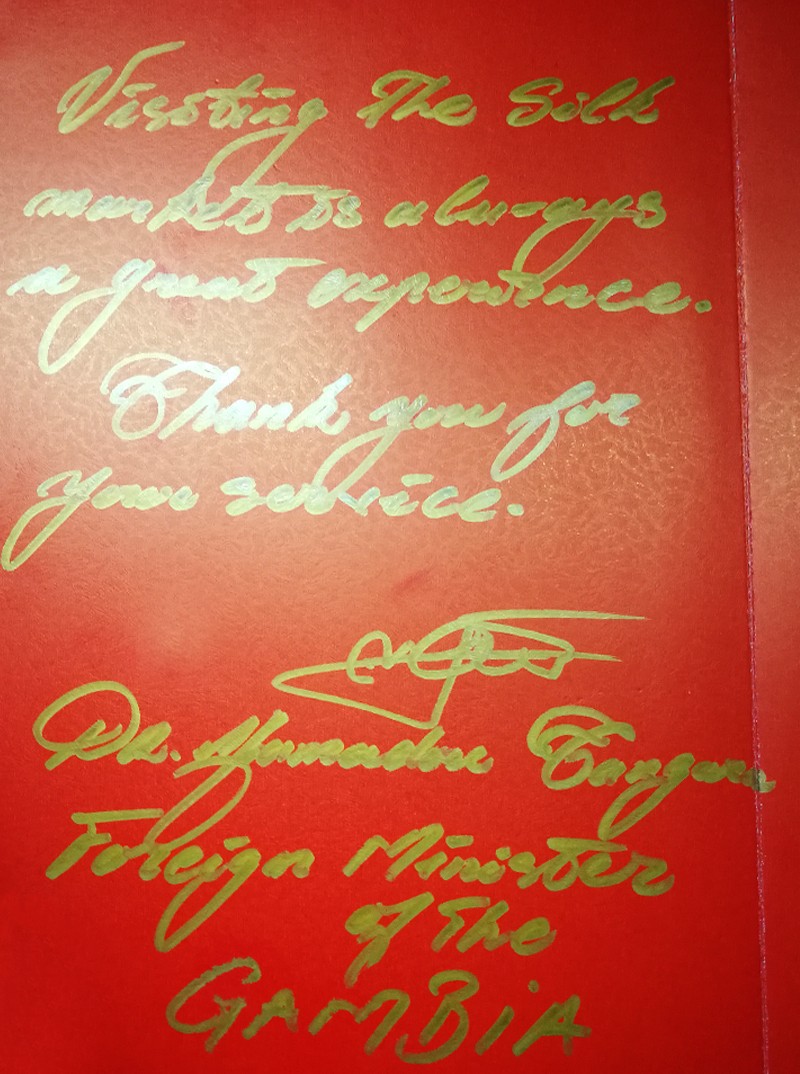 Visiting The Silk
market is always
a great experience.
Thank you for
your service.
Dr. Mamadou Tangara
Foreign Minister
of The
GAMBIA